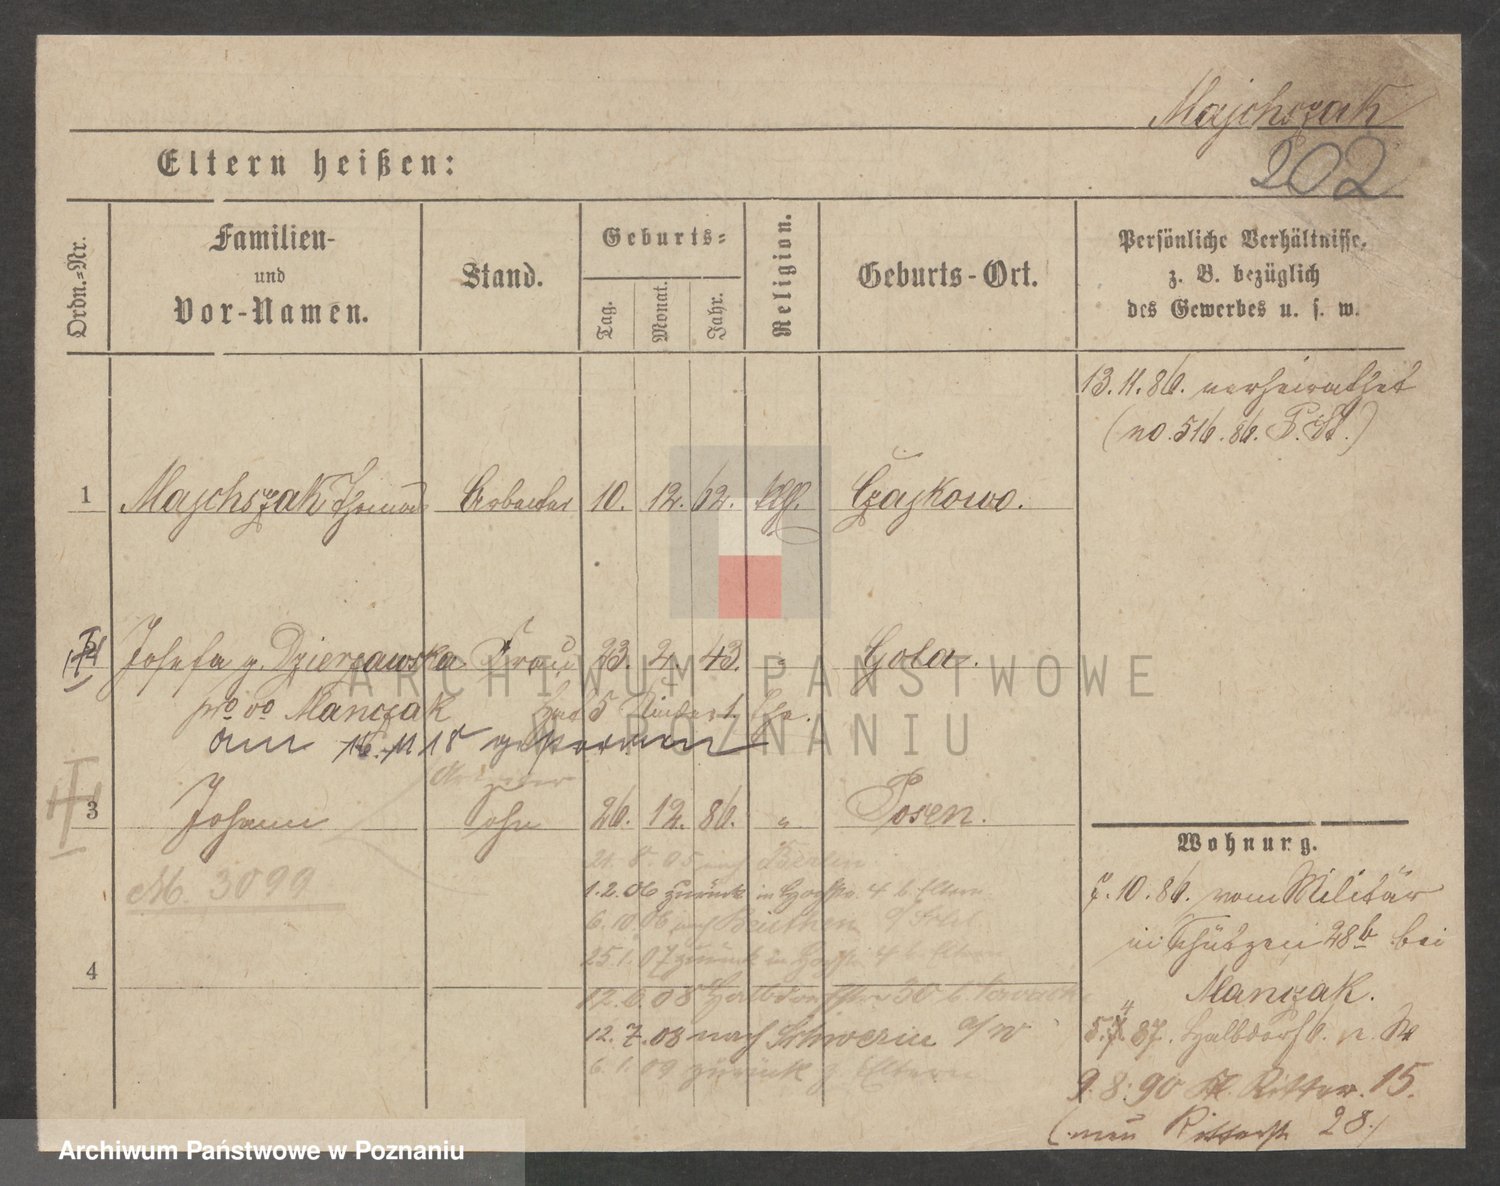 Majchszak
202
Eltern heißen:
Ordn.-Nr.
Familien-
und
Vor-Namen.
Stand.
Geburts-
Tag.
Monat.
Jahr.
Religion.
Geburts-Ort.
Persönliche Verhältnisse,
z. B. bezüglich
des Gewerbes u. s. w.
13. 11. 86. verheirathet
(no. 516. 86. P. St.)
1 Majchszak Thomas Arbeiter 10. 12. 62. kth. Czajkowo.
Josefa g. Dzierzawska Frau 23. 2. 43. " Gola.
pro vo Manczak hat 5 Kinder I. Ehe.
am 16. 11 18 gestorben
3 Johann Sohn 26. 12. 86. " Posen.
M. 3099
21. 8. 05 nach Berlin
1. 2. 06 zurück in 4 b. Eltern
6. 10. 06 nach Beuthen
25. 1. 07 zurück in 4 b. Eltern
12. 6. 08 Halbdorfstr 30 b.
12. 7. 08 nach Schwerin a/W
6. 1. 09 zurück z. Eltern
4
Wohnung.
7. 10. 86. vom Militär
in Schützen 28b bei
Manczak.
5. 4. 87. Halbdorf
9. 8. 90 Kl. Ritter. 15.
(neu Ritterstr 28.)
ARCHIWUM PAŃSTWOWE
W POZNANIU
Archiwum Państwowe w Poznaniu